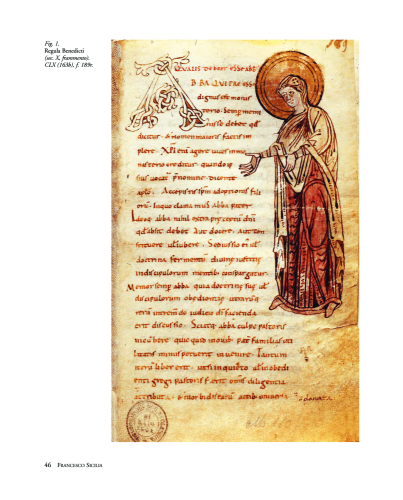 Fig. 1.
Regula Benedicti
(sec. X, frammento).
CLX (163b), f. 189r.
QVALIS debeat esse abb
ABBA QUI PREESSE
dignus est monas
terio. semp mem
nisse debet qd
dicitur. & nomen maioris factis im
plere. XPI enī agere uices in mo
nasterio creditur. quando ipsi
sius uocat pnomine. dicente
aplo. Accepistis spm adoptionis fili
orū. in quo clamamus abba pater.
Ideoq abba nihil extra preceptū dni
qd absit debet aut docere. aut con
stituere uel iubere. Sed iussio ei ul
doctrina fermentū diuine iustitie
in discipulorum mentib conspargatur.
Memor semp abba quia doctrine sue ul
discipulorum obedientie utrarūq
rerū in tremdo iudicio di facienda
erit discussio. Sciatq abba culpe pastoris
incūbere quicquid in ouib pat familias uti
litatis minus potuerit inuenire. Tantum
iterū liber erit. ut si inquieto ul inobedi
enti gregi pastoris f erit omnis diligentia
attributa. & morbidis earū actib uniuersa
46 FRANCESCO SICILIA